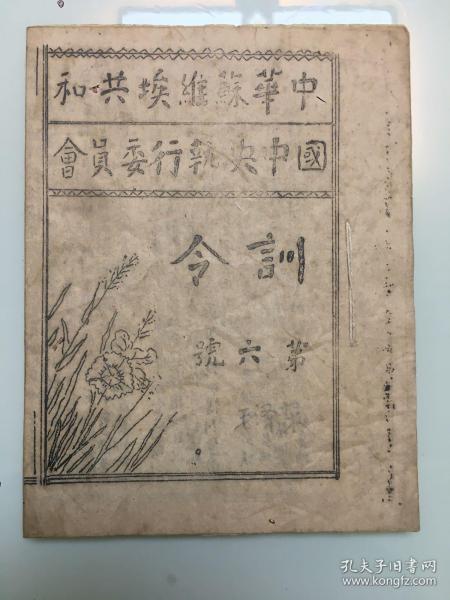 中華蘇維埃共和
國中央執行委員會
訓令
第六號
孔夫子旧书网
www.kongfz.com